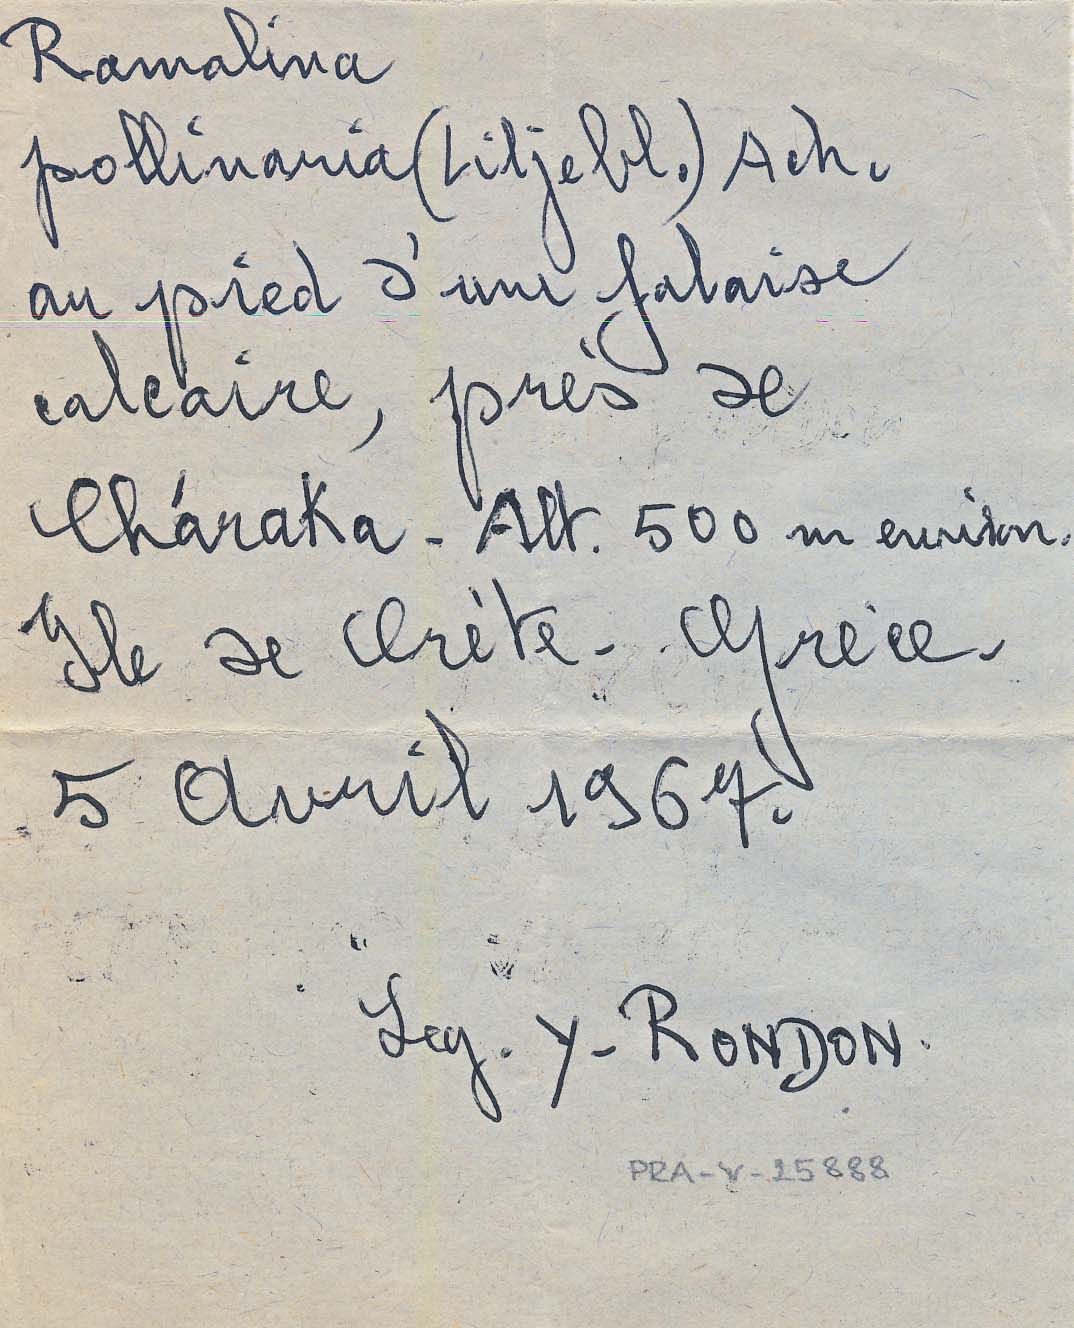 Ramalina
pollinaria (Liljebl.) Ach.
au pied d'une falaise
calcaire, près de
Cháraka - Alt. 500 m environ.
Ile de Crète - Grèce.
5 Avril 1967.
Leg. Y. RONDON.
PRA-V-25888